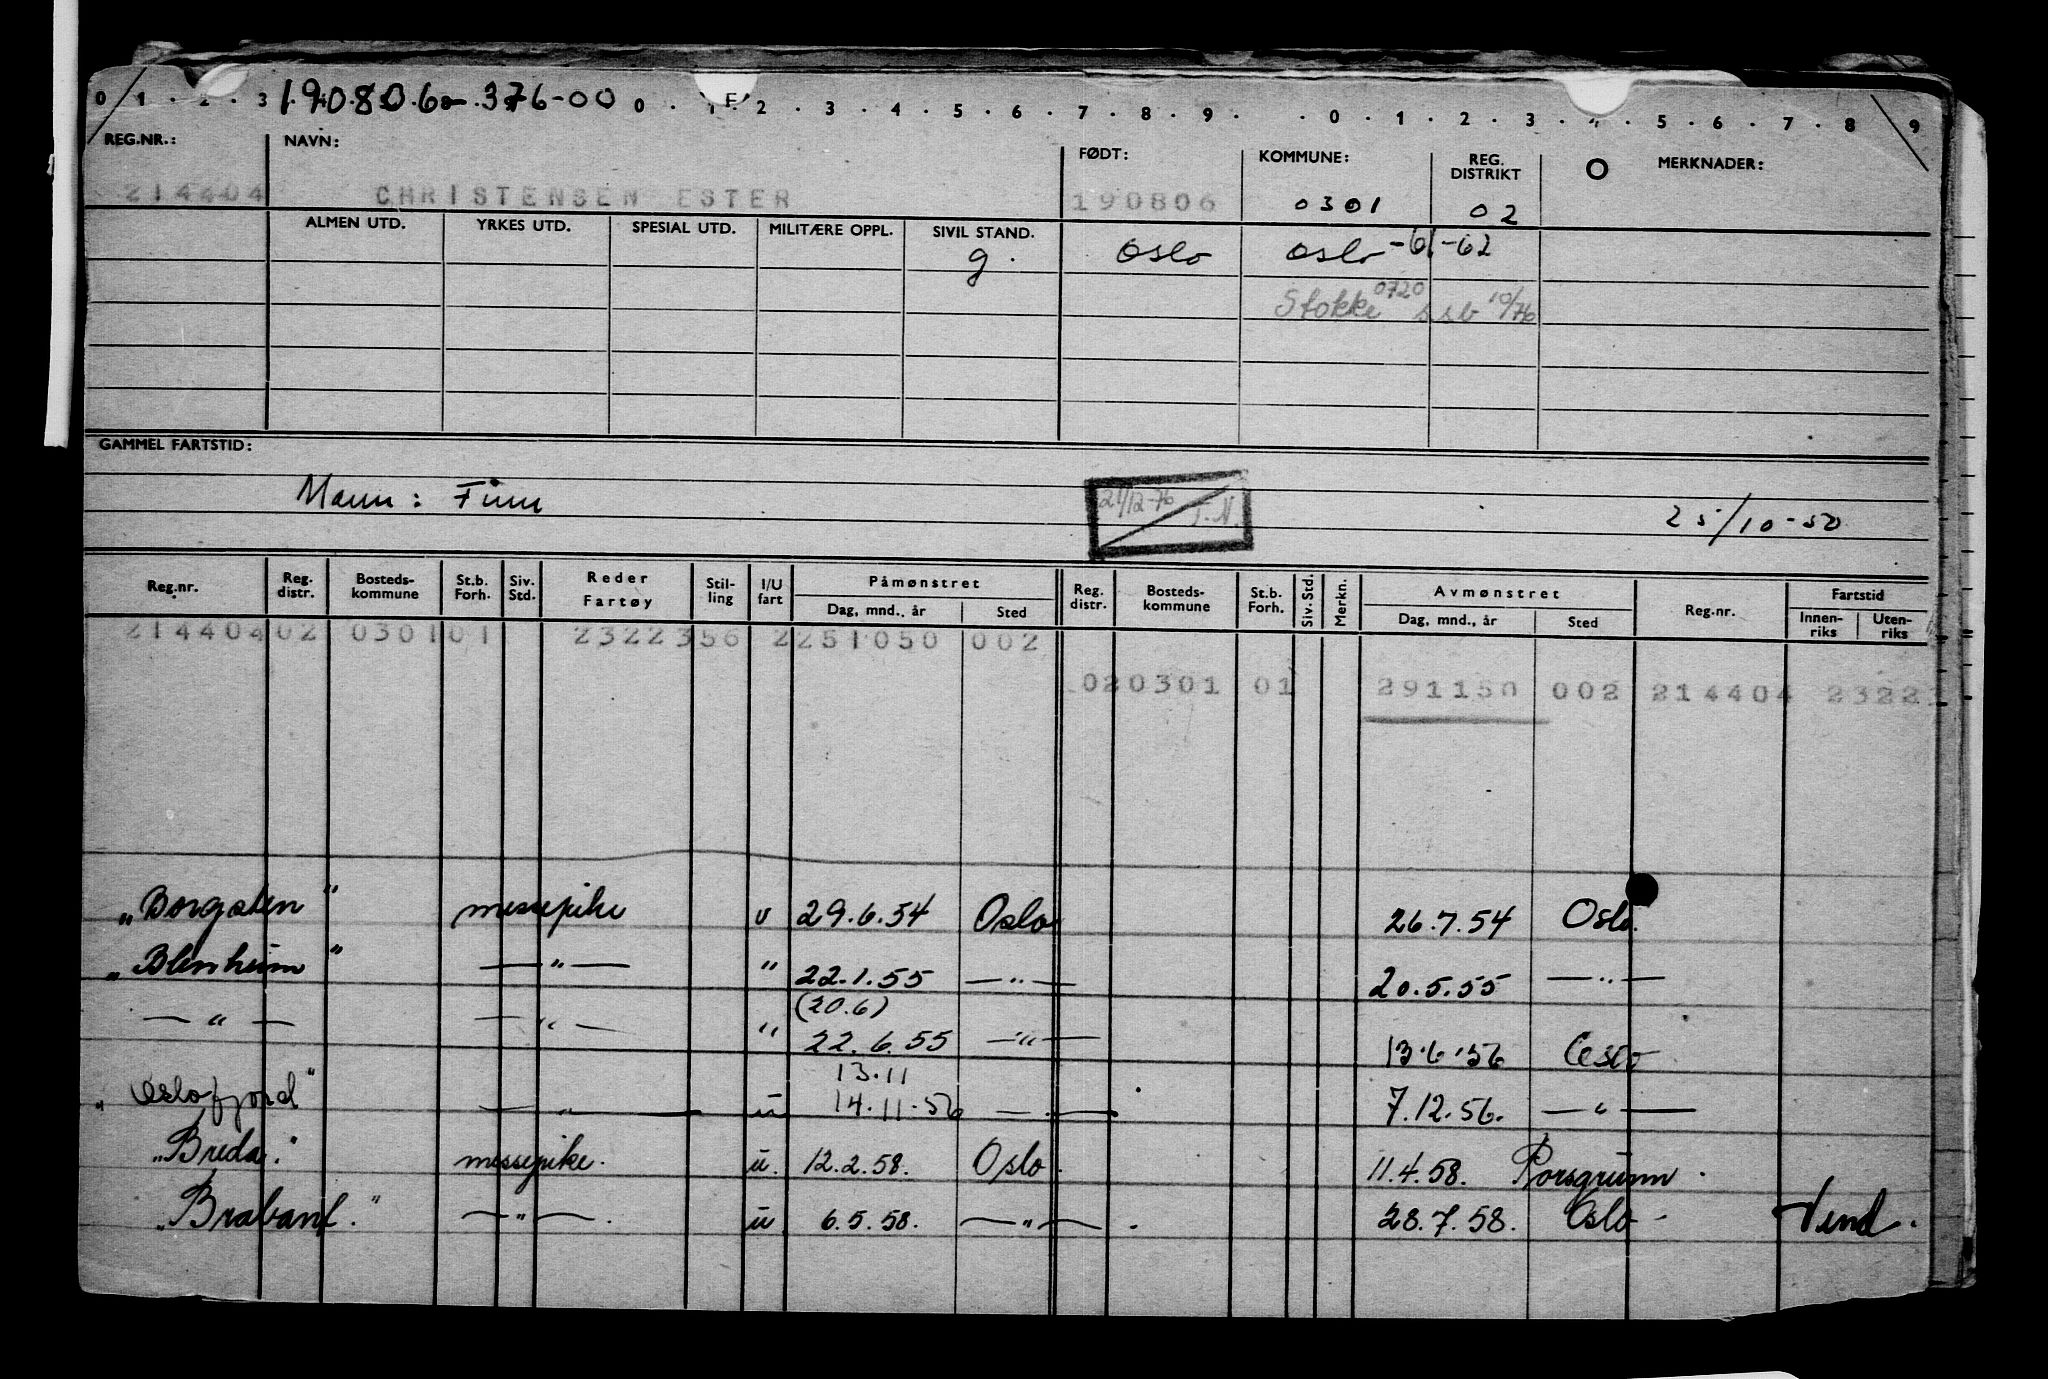 0 1 . 2 . 3 190806-376-00 0 . 1 F 2 . 3 . 4 . 5 . 6 . 7 . 8 . 9 . . 0 . 1 . 2 . 3 . 4 . 5 . 6 . 7 . 8 . 9
REG.NR.: NAVN: FØDT: KOMMUNE: REG. DISTRIKT O MERKNADER:
214404 CHRISTENSEN ESTER 190806 0301 02
ALMEN UTD. YRKES UTD. SPESIAL UTD. MILITÆRE OPPL. SIVIL STAND.
g. Oslo Oslo -61-62
Stokke 0720 ssb 10/76
GAMMEL FARTSTID:
Mann: Finn 21/12-76 T.N. 25/10-50
Reg.nr. Reg. distr. Bosteds-kommune St.b. Forh. Siv. Std. Reder Fartøy Stil-ling I/U fart Påmønstret Dag, mnd., år Sted Reg. distr. Bosteds-kommune St.b. Forh. Siv. Std. Merkn. Avmønstret Dag, mnd., år Sted Reg.nr. Fartstid Innen-riks Uten-riks
214404 02 0301 01 2322356 2 251050 002
02 0301 01 291150 002 214404 2322
"Borgsten" messepike u 29.6.54 Oslo 26.7.54 Oslo.
"Blenheim" — " — " 22.1.55 — " — 20.5.55 — " —
— " — — " — " (20.6) 22.6.55 — " — 13.6.56 Oslo
"Oslofjord" — " — u 13.11 14.11.56 — " — 7.12.56. — " —
"Breda". messepike. u. 12.2.58. Oslo. 11.4.58. Porsgrunn.
"Brabant." — " —. u. 6.5.58. — " —. 28.7.58. Oslo- Vend.